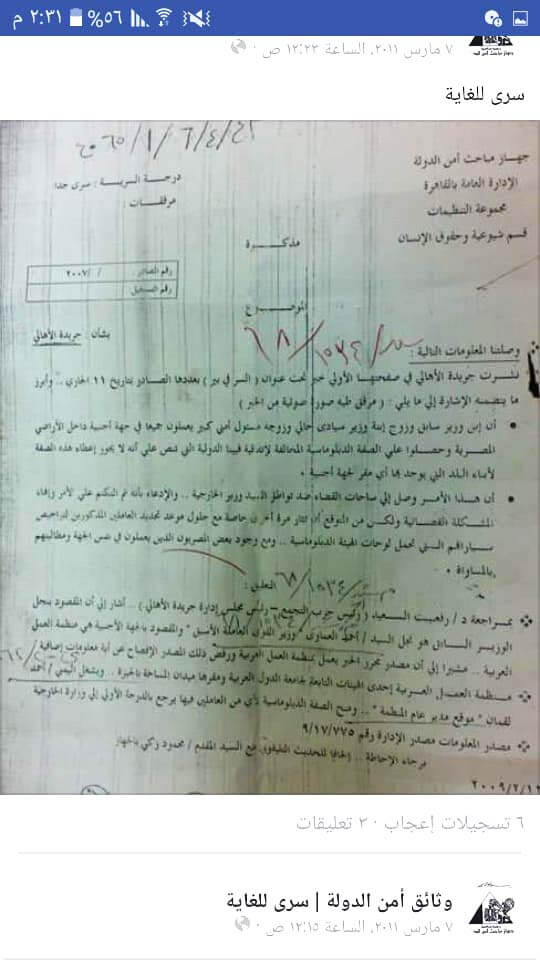 ٢:٣١ م
٥٦%
٧ مارس ٢٠١١، الساعة ١٢:٢٣ ص ·
سرى للغاية
جهاز مباحث أمن الدولة
الإدارة العامة بالقاهرة
مجموعة التنظيمات
قسم شيوعية وحقوق الإنسان
درجة السرية : سرى جدا
مرفقات :
مذكرة
رقم الصادر : / /٢٠٠٧
رقم التسجيل
الموضوع
بشأن : جريدة الأهالي
٦٨/١٥٣٤/
وصلتنا المعلومات التالية :
نشرت جريدة الأهالي في صفحتها الأولي خبر تحت عنوان ( السر في بير ) بعددها الصادر بتاريخ ١١ الجاري .. وأبرز
ما يتضمنه الإشارة إلي ما يلي : ( مرفق طيه صورة ضوئية من الخبر )
• أن إبن وزير سابق وزوج إبنة وزير سيادى حالي وزوجه مسئول أمني كبير يعملون جميعا في جهة أجنبية داخل الأراضي
المصرية وحصلوا علي الصفة الدبلوماسية المخالفة لإتفاقية فيينا الدولية التي تنص علي أنه لا يجوز إعطاء هذه الصفة
لأبناء البلد التي يوجد بها أي مقر لجهة أجنبية .
• أن هذا الأمر وصل إلي ساحات القضاء ضد تواطؤ السيد وزير الخارجية .. والإدعاء بأنه تم التكتم علي الأمر وإنهاء
المشكلة القضائية ولكن من المتوقع أن تثار مرة أخرى خاصة مع حلول موعد تجديد العاملين المذكورين لتراخيص
سياراتهم التي تحمل لوحات الهيئة الدبلوماسية .. ومع وجود بعض المصريون الذين يعملون في نفس الجهة ومطالبهم
بالمساواة .
التعليق :
٦٨/١٥٣٤/
بمراجعة د / رفعت السعيد ( رئيس حزب التجمع – رئيس مجلس إدارة جريدة الأهالي ) .. أشار إلي أن المقصود بنجل
الوزير السابق هو نجل السيد / أحمد العماوى " وزير القوى العاملة الأسبق " والمقصود بالجهة الأجنبية هي منظمة العمل
العربية .. مشيرا إلي أن مصدر محرر الخبر يعمل بمنظمة العمل العربية ورفض ذلك المصدر الإفصاح عن أية معلومات إضافية
منظمة العمل العربية إحدى الهيئات التابعة لجامعة الدول العربية ومقرها ميدان المساحة بالجيزة .. ويشغل اليمني / أحمد
لقمان " موقع مدير عام المنظمة " .. ومنح الصفة الدبلوماسية لأي من العاملين فيها يرجع بالدرجة الأولي إلي وزارة الخارجية
مصدر المعلومات مصدر الإدارة رقم ٩/١٧/٧٧٥
برجاء الإحاطة .. إلحاقا للحديث التليفوني مع السيد المقدم / محمود زكي بالجهاز
٢٠٠٩/٢/١٢
٦ تسجيلات إعجاب · ٣ تعليقات
وثائق أمن الدولة | سرى للغاية
٧ مارس ٢٠١١، الساعة ١٢:١٥ ص ·